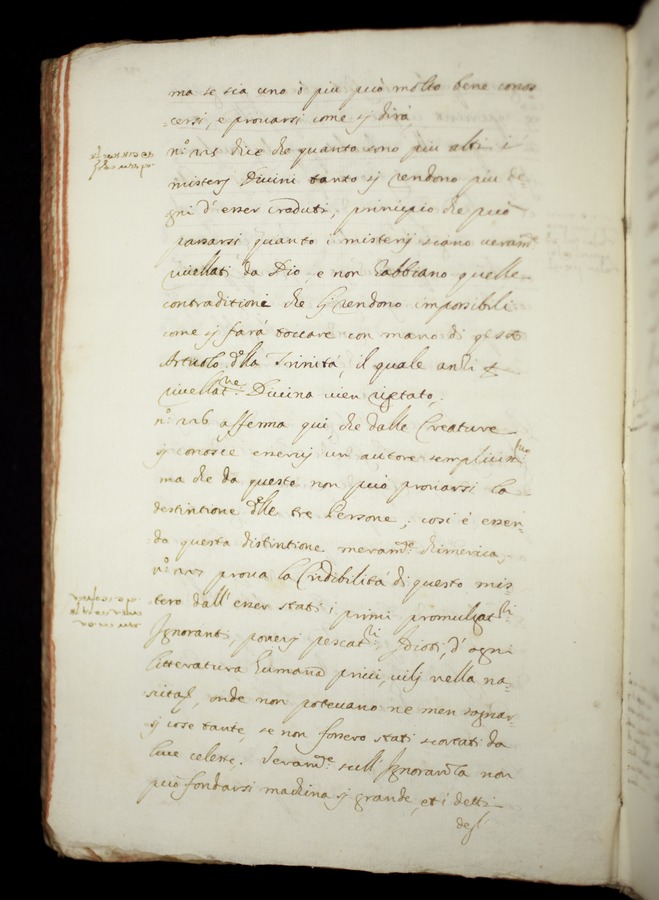 ma se sia uno ò piu può molto bene conos
-cersi, e provarsi come si dirà,
n.º 225 dice che quanto sono più alti i
misterij Divini tanto si rendono piu de-
gni d'esser creduti, principio che può
passarsi quanto i misterij siano veram.te
rivellati da Dio, e non habbiano quelle
contraditione che li rendono impossibili
come si farà toccare con mano di q.sto
Articolo della Trinità, il quale anzi
rivellat.ne Divina vien rigettato,
n.º 226 afferma qui, che dalle Creature
si conosce esservi un autore semplicis.mo
ma che da questo non può provarsi la
destintione delle tre Persone, così è essen-
do questa distintione meram.te chimerica,
n.º 227 prova la Credibilità di questo mis-
tero dall'esser stati i primi promulgat.ri
Ignoranti, poveri pescat.ri Idioti, d'ogni
litteratura humana privi, vili nella na-
scita, onde non potevano ne men sognar-
si cose tante, se non fossero stati scortati da
luce celeste. Veram.te sull'Ignoranza non
può fondarsi machina sì grande, et i detti
degl'